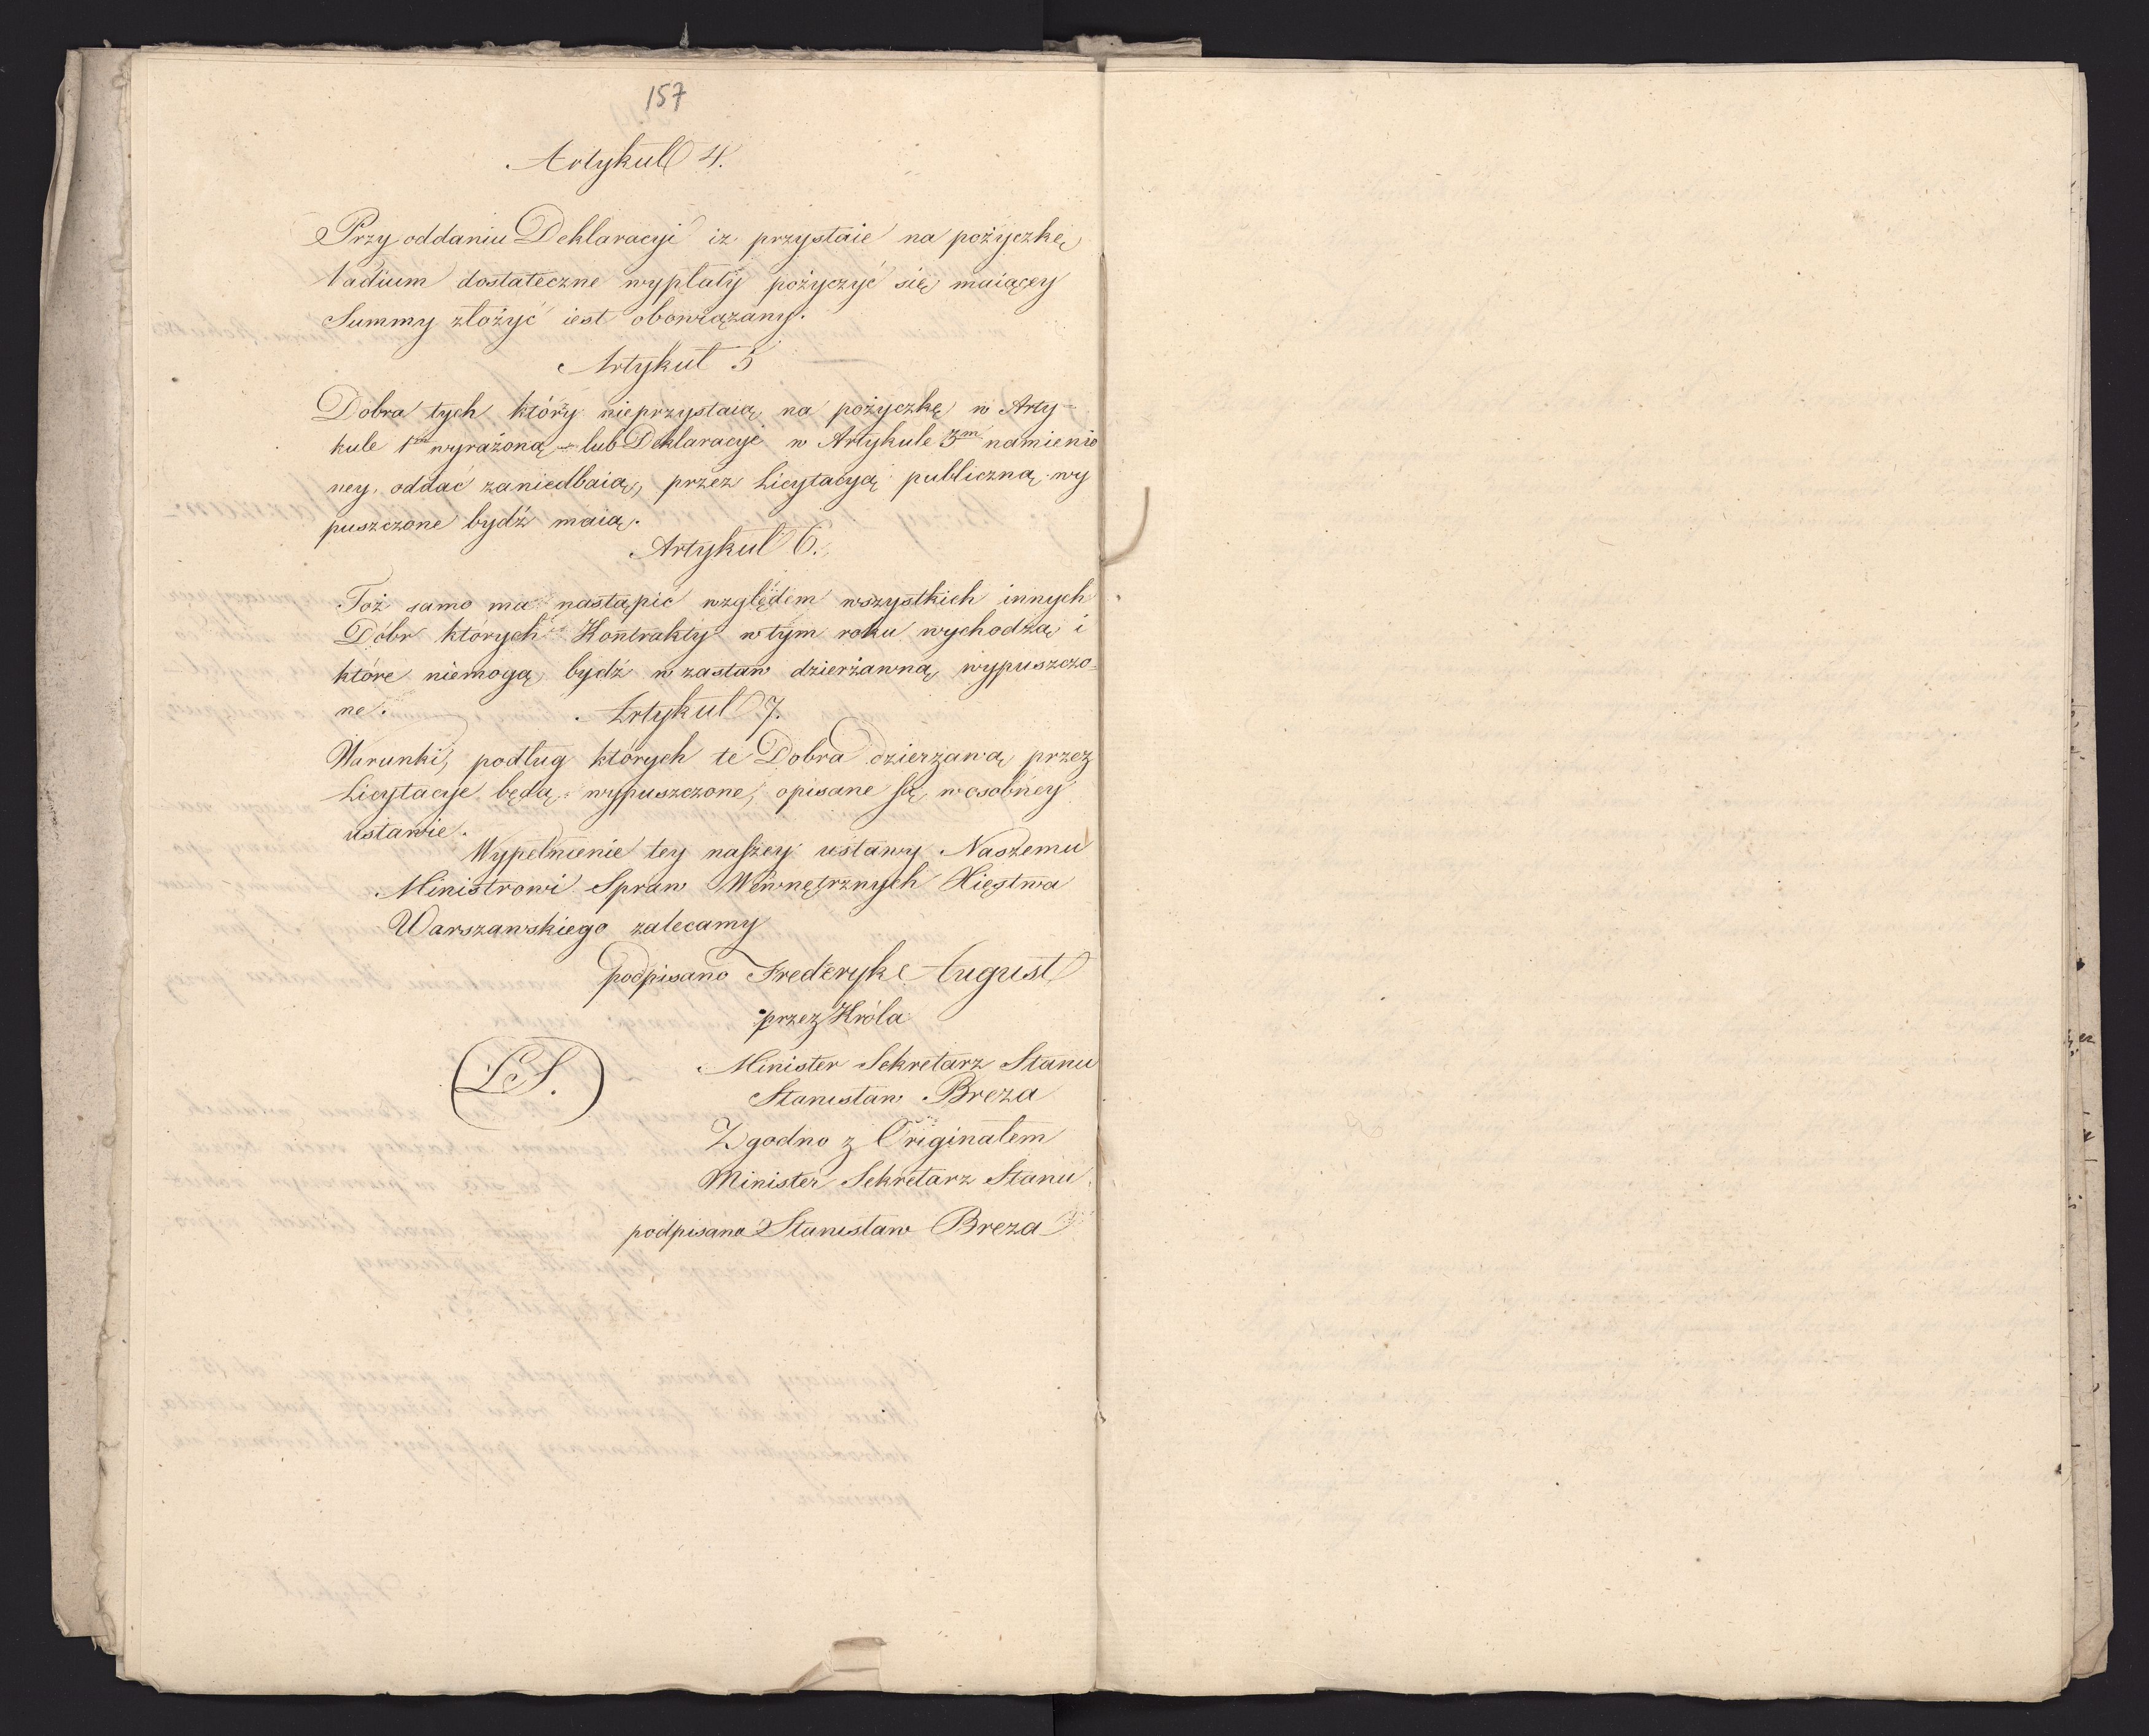 157
Artykuł 4.
Przy oddaniu Deklaracyi iz przystaie na pożyczkę
Vadium dostateczne wypłaty pożyczyć się maiącey
Summy złożyć iest obowiązany.
Artykuł 5
Dobra tych którzy nieprzystaią na pożyczkę w Arty-
kule 1m wyrażoną lub Deklaracyi w Artykule 3m namienio
ney oddać zaniedbaią, przez Licytacyą publiczną wy
puszczone bydź maią.
Artykuł 6.
Toż samo ma nastąpić względem wszystkich innych
Dóbr których Kontrakty w tym roku wychodzą i
które niemogą bydź w zastaw dzierżawną wypuszczo-
ne.
Artykuł 7.
Warunki, podług których te Dobra dzierżawą przez
Licytacye będą wypuszczone, opisane są w osobney
ustawie.
Wypełnienie tey naszey ustawy Naszemu
Ministrowi Spraw Wewnętrznych Xięstwa
Warszawskiego zalecamy
podpisano Frederyk August
przez Króla
(L.S.)
Minister Sekretarz Stanu
Stanisław Breza
Zgodno z Originałem
Minister Sekretarz Stanu
podpisano Stanisław Breza